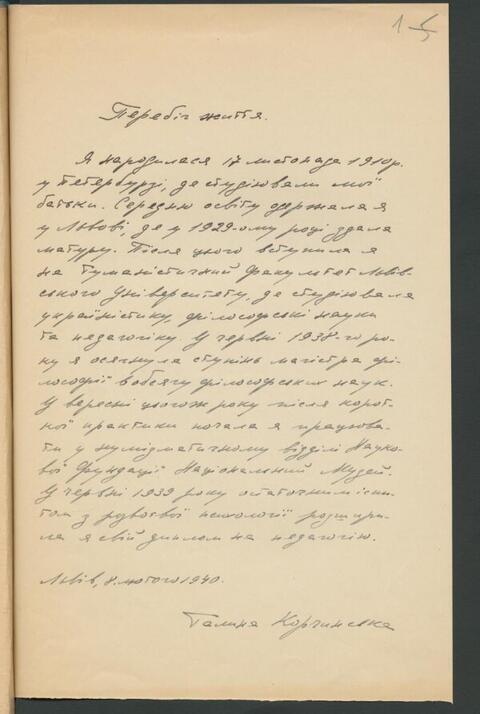 1
Перебіг життя.
Я народилася 17 листопада 1910 р.
у Петербурзі, де студіювали мої
батьки. Середню освіту одержала я
у Львові, де у 1929-ому році здала
матуру. Після цього вступила я
на Гуманістичний Факультет Львів-
ського Університету, де студіювала
україністику, філософські науки
та педагогіку. У червні 1938-го ро-
ку я осягнула ступінь магістра фі-
лософії в обсягу філософських наук.
У вересні цього ж року після корот-
кої практики почала я працюва-
ти у нумізматичному відділі Науко-
вої Фундації Національний Музей.
У червні 1939 року остаточним іспи-
том з розвоєвої психології розшири-
ла я свій диплом на педагогію.
Львів, 8. лютого 1940.
Галина Корчинська